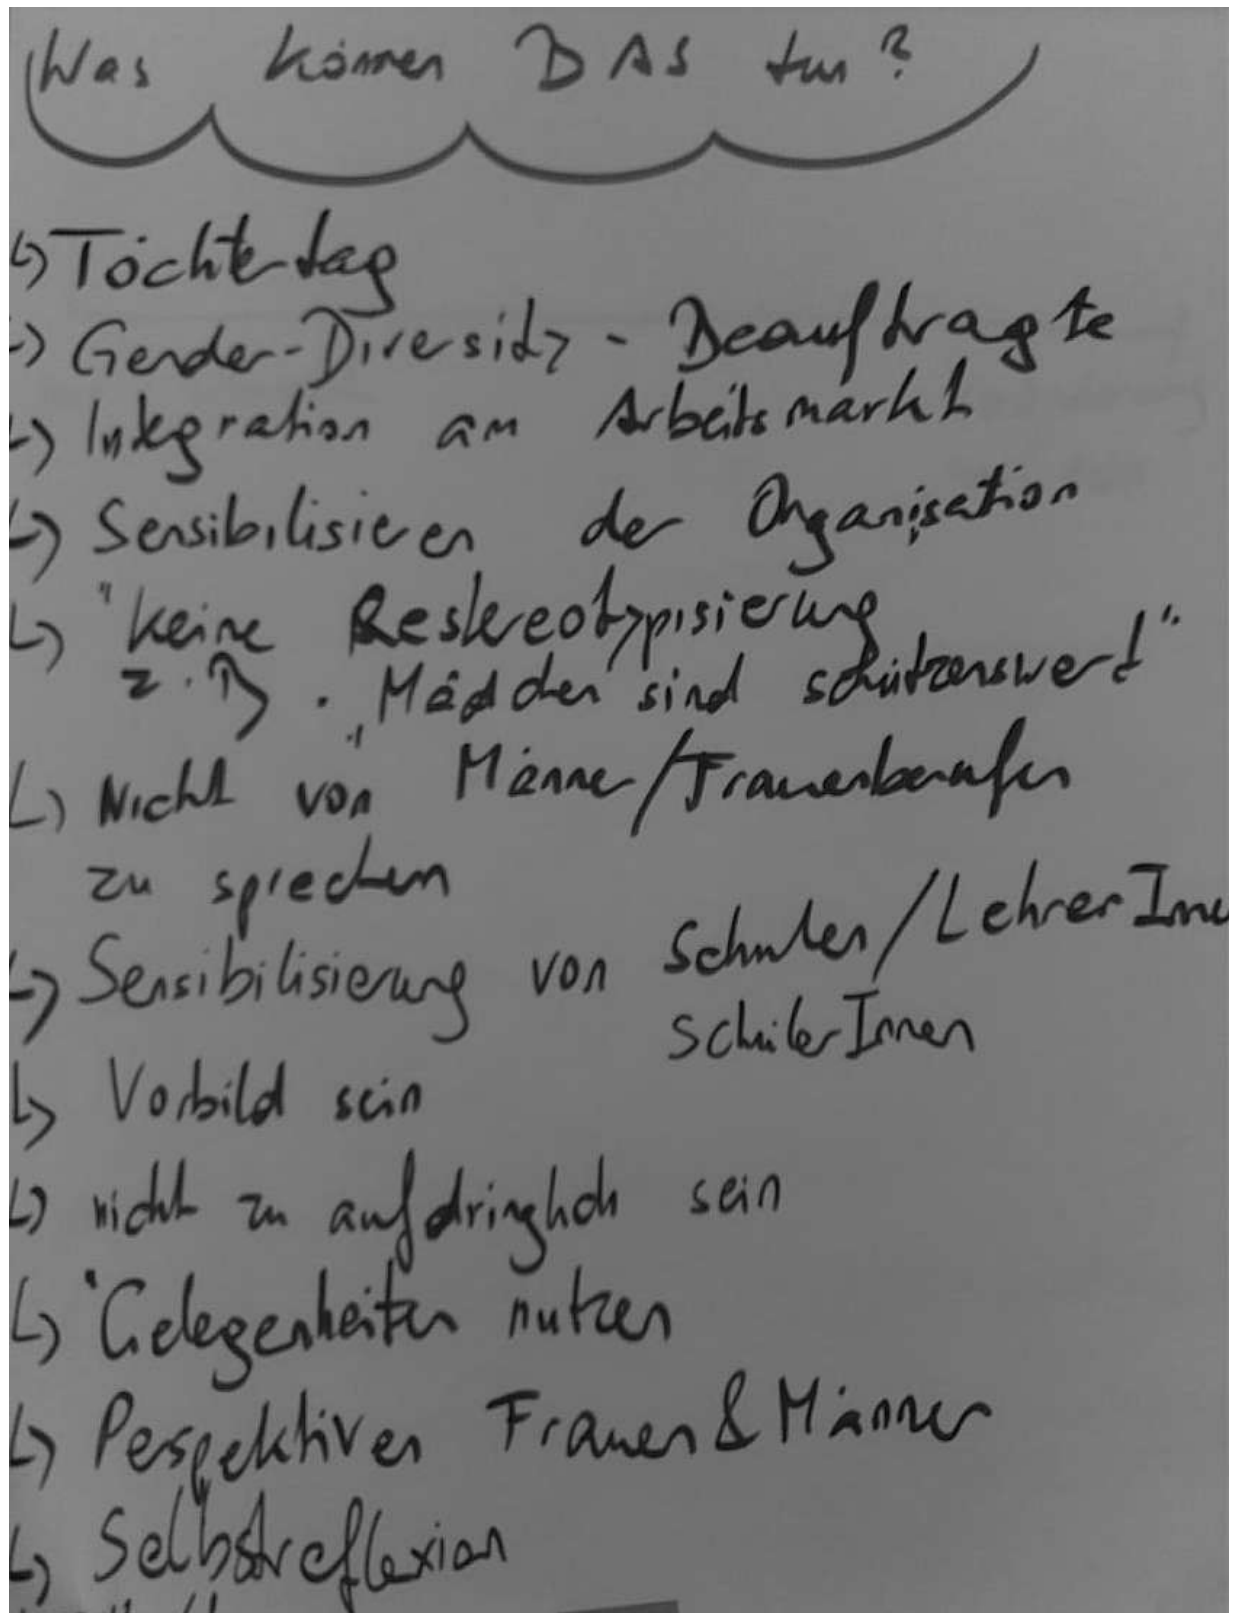 Was können DAS tun?
↳ Töchtertag
↳ Gender-Diversity - Beauftragte
↳ Integration am Arbeitsmarkt
↳ Sensibilisieren der Organisation
↳ "keine Restereotypisierung
z.B. "Mädchen sind schützenswert"
↳ Nicht von Männer/Frauenberufen
zu sprechen
↳ Sensibilisierung von Schulen/LehrerInne
SchülerInnen
↳ Vorbild sein
↳ nicht zu aufdringlich sein
↳ Gelegenheiten nutzen
↳ Perspektiven Frauen & Männer
↳ Selbstreflexion